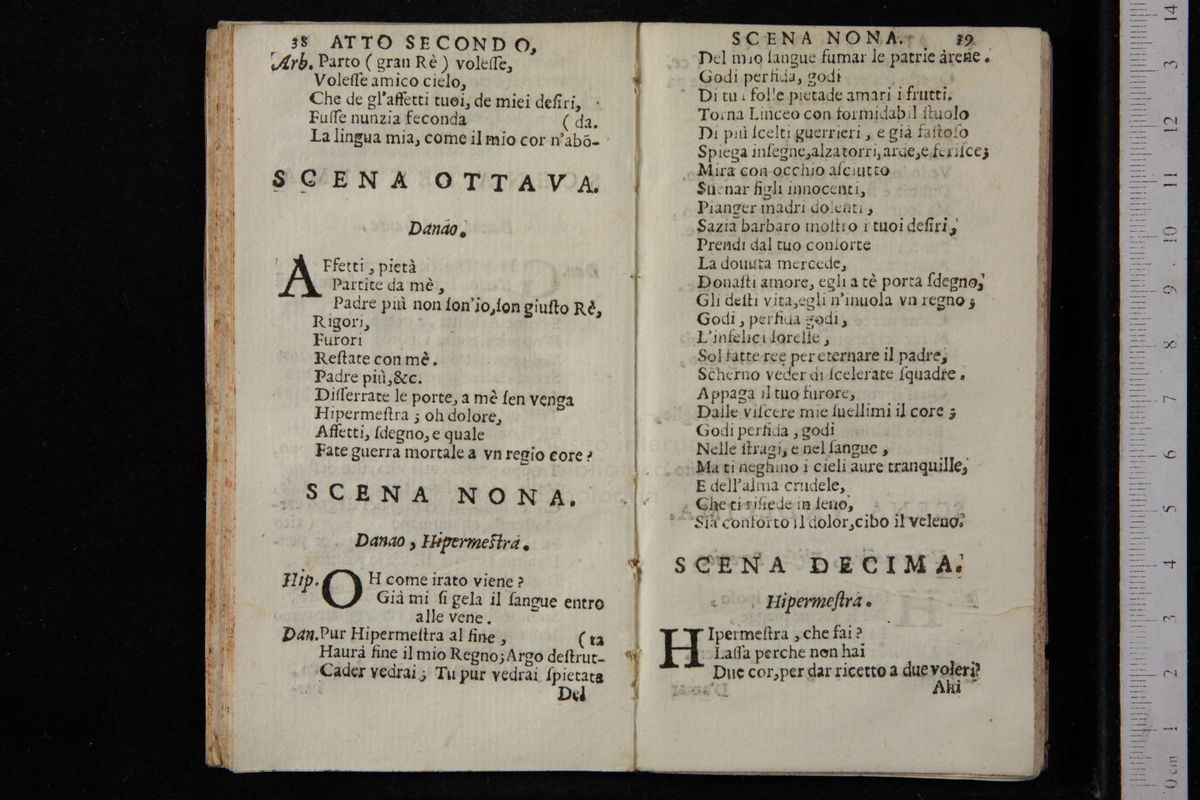 38 ATTO SECONDO,
Arb. Parto ( gran Rè ) voleſſe,
Voleſſe amico cielo,
Che de gl'affetti tuoi, de miei deſiri,
Fuſſe nunzia feconda ( da.
La lingua mia, come il mio cor n'abõ-
SCENA OTTAVA.
Danao.
AFfetti, pietà
Partite da mè,
Padre più non ſon'io, ſon giuſto Rè,
Rigori,
Furori
Reſtate con mè.
Padre più, &c.
Diſſerrate le porte, a mè ſen venga
Hipermeſtra; oh dolore,
Affetti, ſdegno, e quale
Fate guerra mortale a vn regio core?
SCENA NONA.
Danao, Hipermeſtra.
Hip. OH come irato viene?
Già mi ſi gela il ſangue entro
alle vene.
Dan. Pur Hipermeſtra al fine, ( ta
Haurà fine il mio Regno; Argo deſtrut-
Cader vedrai; Tu pur vedrai ſpietata
Del
SCENA NONA. 39
Del mio ſangue fumar le patrie arene.
Godi perfida, godi
Di tua folle pietade amari i frutti.
Torna Linceo con formidabil ſtuolo
Di più ſcelti guerrieri, e già faſtoſo
Spiega inſegne, alza torri, arde, e feriſce;
Mira con occhio aſciutto
Suenar figli innocenti,
Pianger madri dolenti,
Sazia barbaro moſtro i tuoi deſiri,
Prendi dal tuo conſorte
La douuta mercede,
Donaſti amore, egli a tè porta ſdegno,
Gli deſti vita, egli n'inuola vn regno;
Godi, perfida godi,
L'infelici ſorelle,
Sol fatte ree per eternare il padre,
Scherno veder di ſcelerate ſquadre.
Appaga il tuo furore,
Dalle viſcere mie ſuellimi il core;
Godi perfida, godi
Nelle ſtragi, e nel ſangue,
Ma ti neghino i cieli aure tranquille,
E dell'alma crudele,
Che ti riſiede in ſeno,
Sia conforto il dolor, cibo il veleno.
SCENA DECIMA.
Hipermeſtra.
HIpermeſtra, che fai?
Laſſa perche non hai
Due cor, per dar ricetto a due voleri?
Ahi